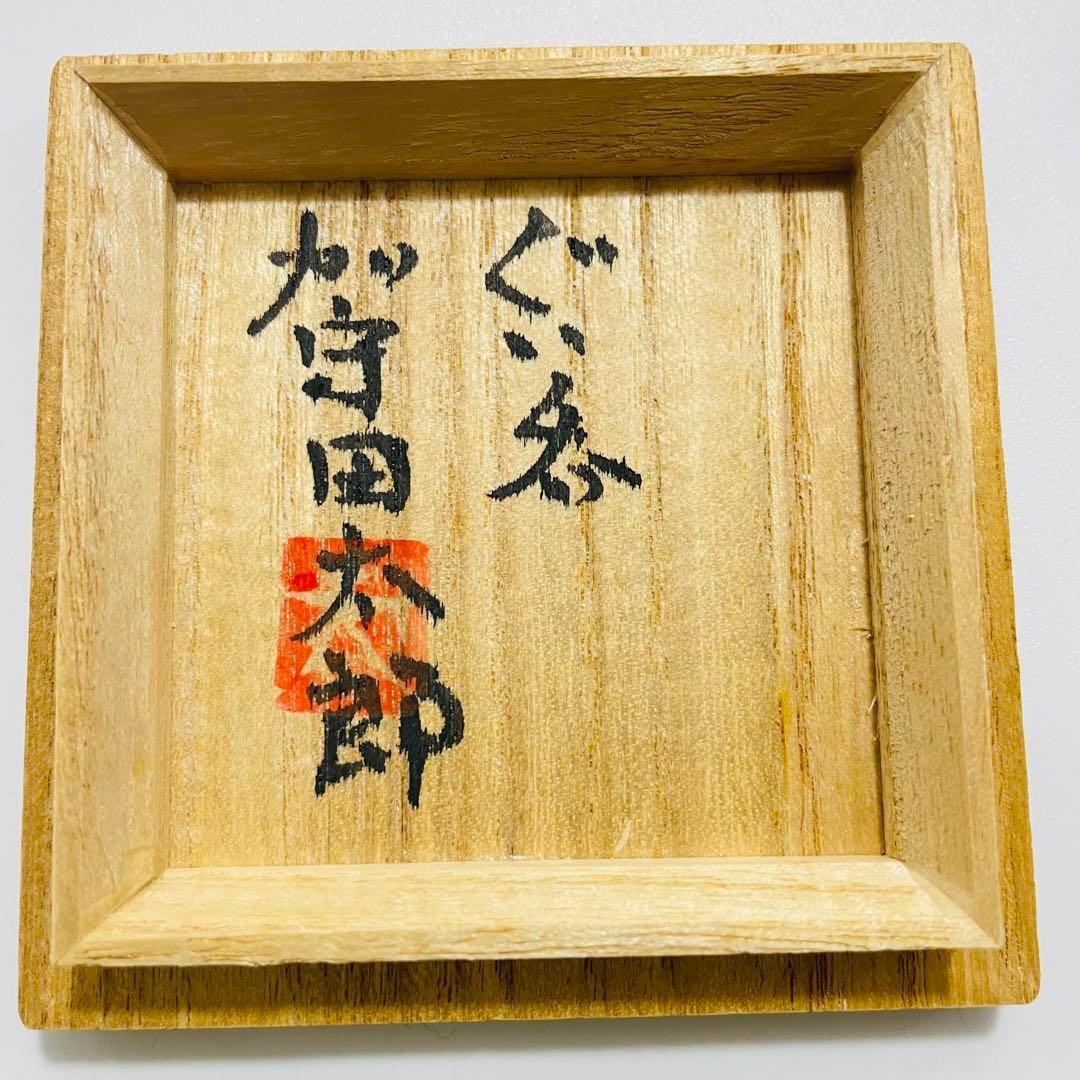 ぐい呑
加守田太郎